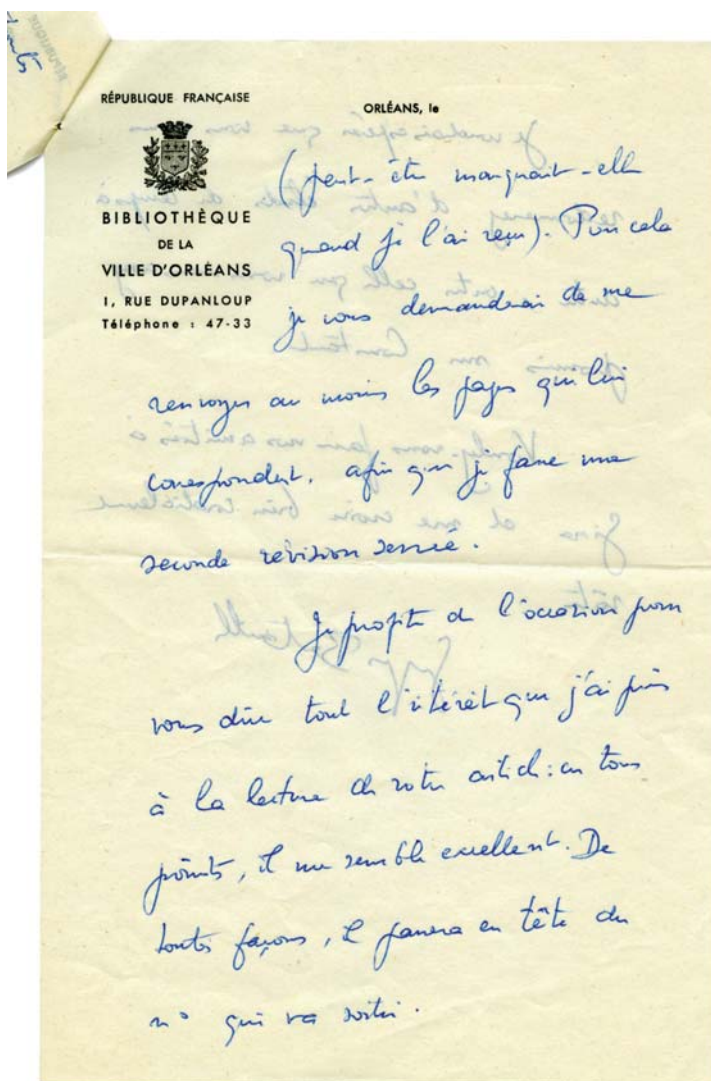 outes
RÉPUBLIQUE
RÉPUBLIQUE FRANÇAISE
ORLÉANS, le
BIBLIOTHÈQUE
DE LA
VILLE D'ORLÉANS
1, RUE DUPANLOUP
Téléphone : 47-33
(peut-être manquait-elle
quand je l'ai reçu). Pour cela
je vous demanderai de me
renvoyer au moins les pages qui lui
correspondent, afin que je fasse une
seconde révision serrée.
Je profite de l'occasion pour
vous dire tout l'intérêt que j'ai pris
à la lecture de votre article : en tous
points, il me semble excellent. De
toutes façons, il passera en tête du
n° qui va sortir.